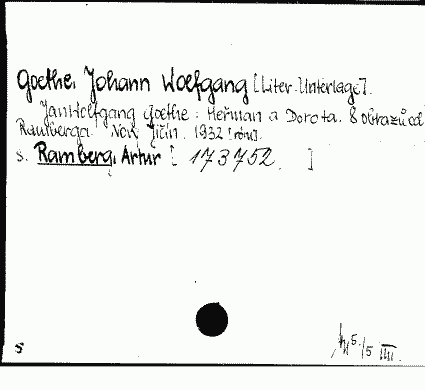 Goethe, Johann Wolfgang [Liter. Unterlage].
Jan Wolfgang Goethe: Heřman a Dorota. 8 obrazů od
Ramberga. Jičín. 1932
s. Ramberg, Artur [ 173752 ]
s